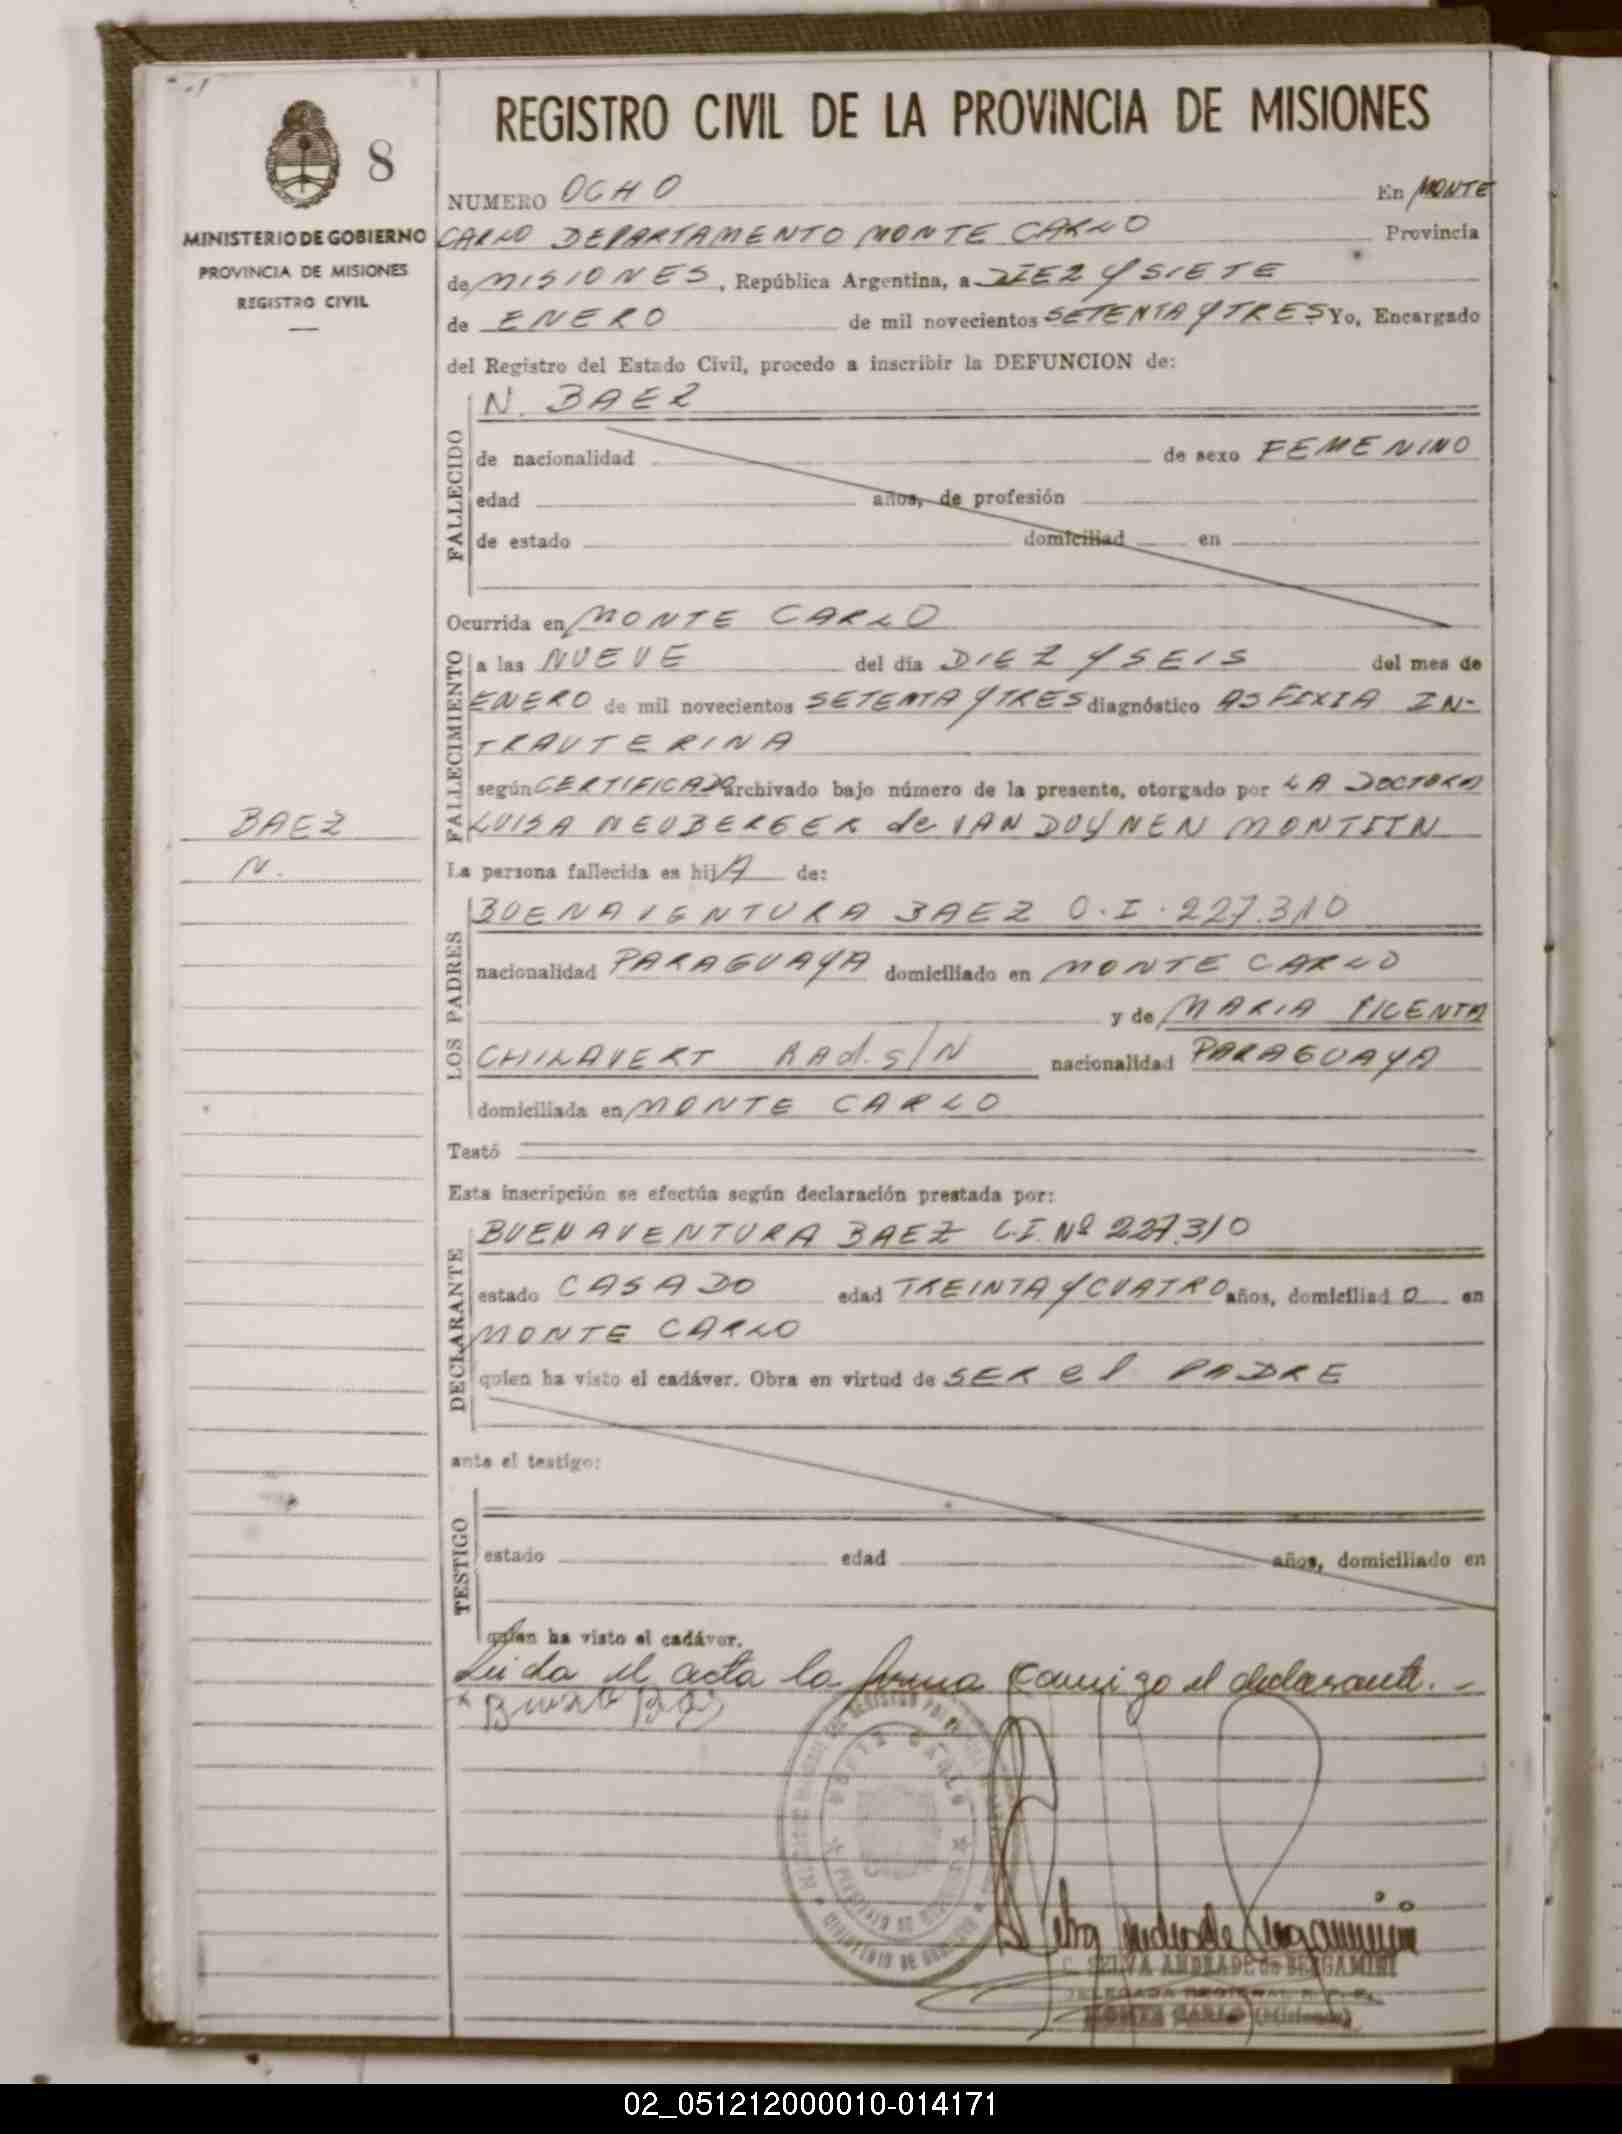 REGISTRO CIVIL DE LA PROVINCIA DE MISIONES
8
MINISTERIO DE GOBIERNO
PROVINCIA DE MISIONES
REGISTRO CIVIL
NUMERO OCHO En MONTE
CARLO DEPARTAMENTO MONTE CARLO Provincia
de MISIONES, República Argentina, a DIEZ Y SIETE
de ENERO de mil novecientos SETENTA Y TRES Yo, Encargado
del Registro del Estado Civil, procedo a inscribir la DEFUNCION de:
FALLECIDO
N. BAEZ
de nacionalidad de sexo FEMENINO
edad años, de profesión
de estado domiciliad en
Ocurrida en MONTE CARLO
FALLECIMIENTO
a las NUEVE del día DIEZ Y SEIS del mes de
ENERO de mil novecientos SETENTA Y TRES diagnóstico ASFIXIA IN-
TRAUTERINA
según CERTIFICADO archivado bajo número de la presente, otorgado por LA DOCTORA
LUISA NEUBERGER de VAN DUYNEN
BAEZ
N.
La persona fallecida es hijA de:
LOS PADRES
BUENAVENTURA BAEZ C.I. 227.310
nacionalidad PARAGUAYA domiciliado en MONTE CARLO
y de MARIA VICENTA
CHILAVERT s/N nacionalidad PARAGUAYA
domiciliada en MONTE CARLO
Testó
Esta inscripción se efectúa según declaración prestada por:
DECLARANTE
BUENAVENTURA BAEZ C.I. Nº 227.310
estado CASADO edad TREINTA Y CUATRO años, domiciliad O en
MONTE CARLO
quien ha visto el cadáver. Obra en virtud de SER el PADRE
ante el testigo:
TESTIGO
estado edad años, domiciliado en
quien ha visto el cadáver.
Leida el acta la firma conmigo el declarante.-
C. SELVA ANDRADE de BERGAMINI
DELEGADA REGIONAL
MONTE CARLO (Misiones)
02_051212000010-014171